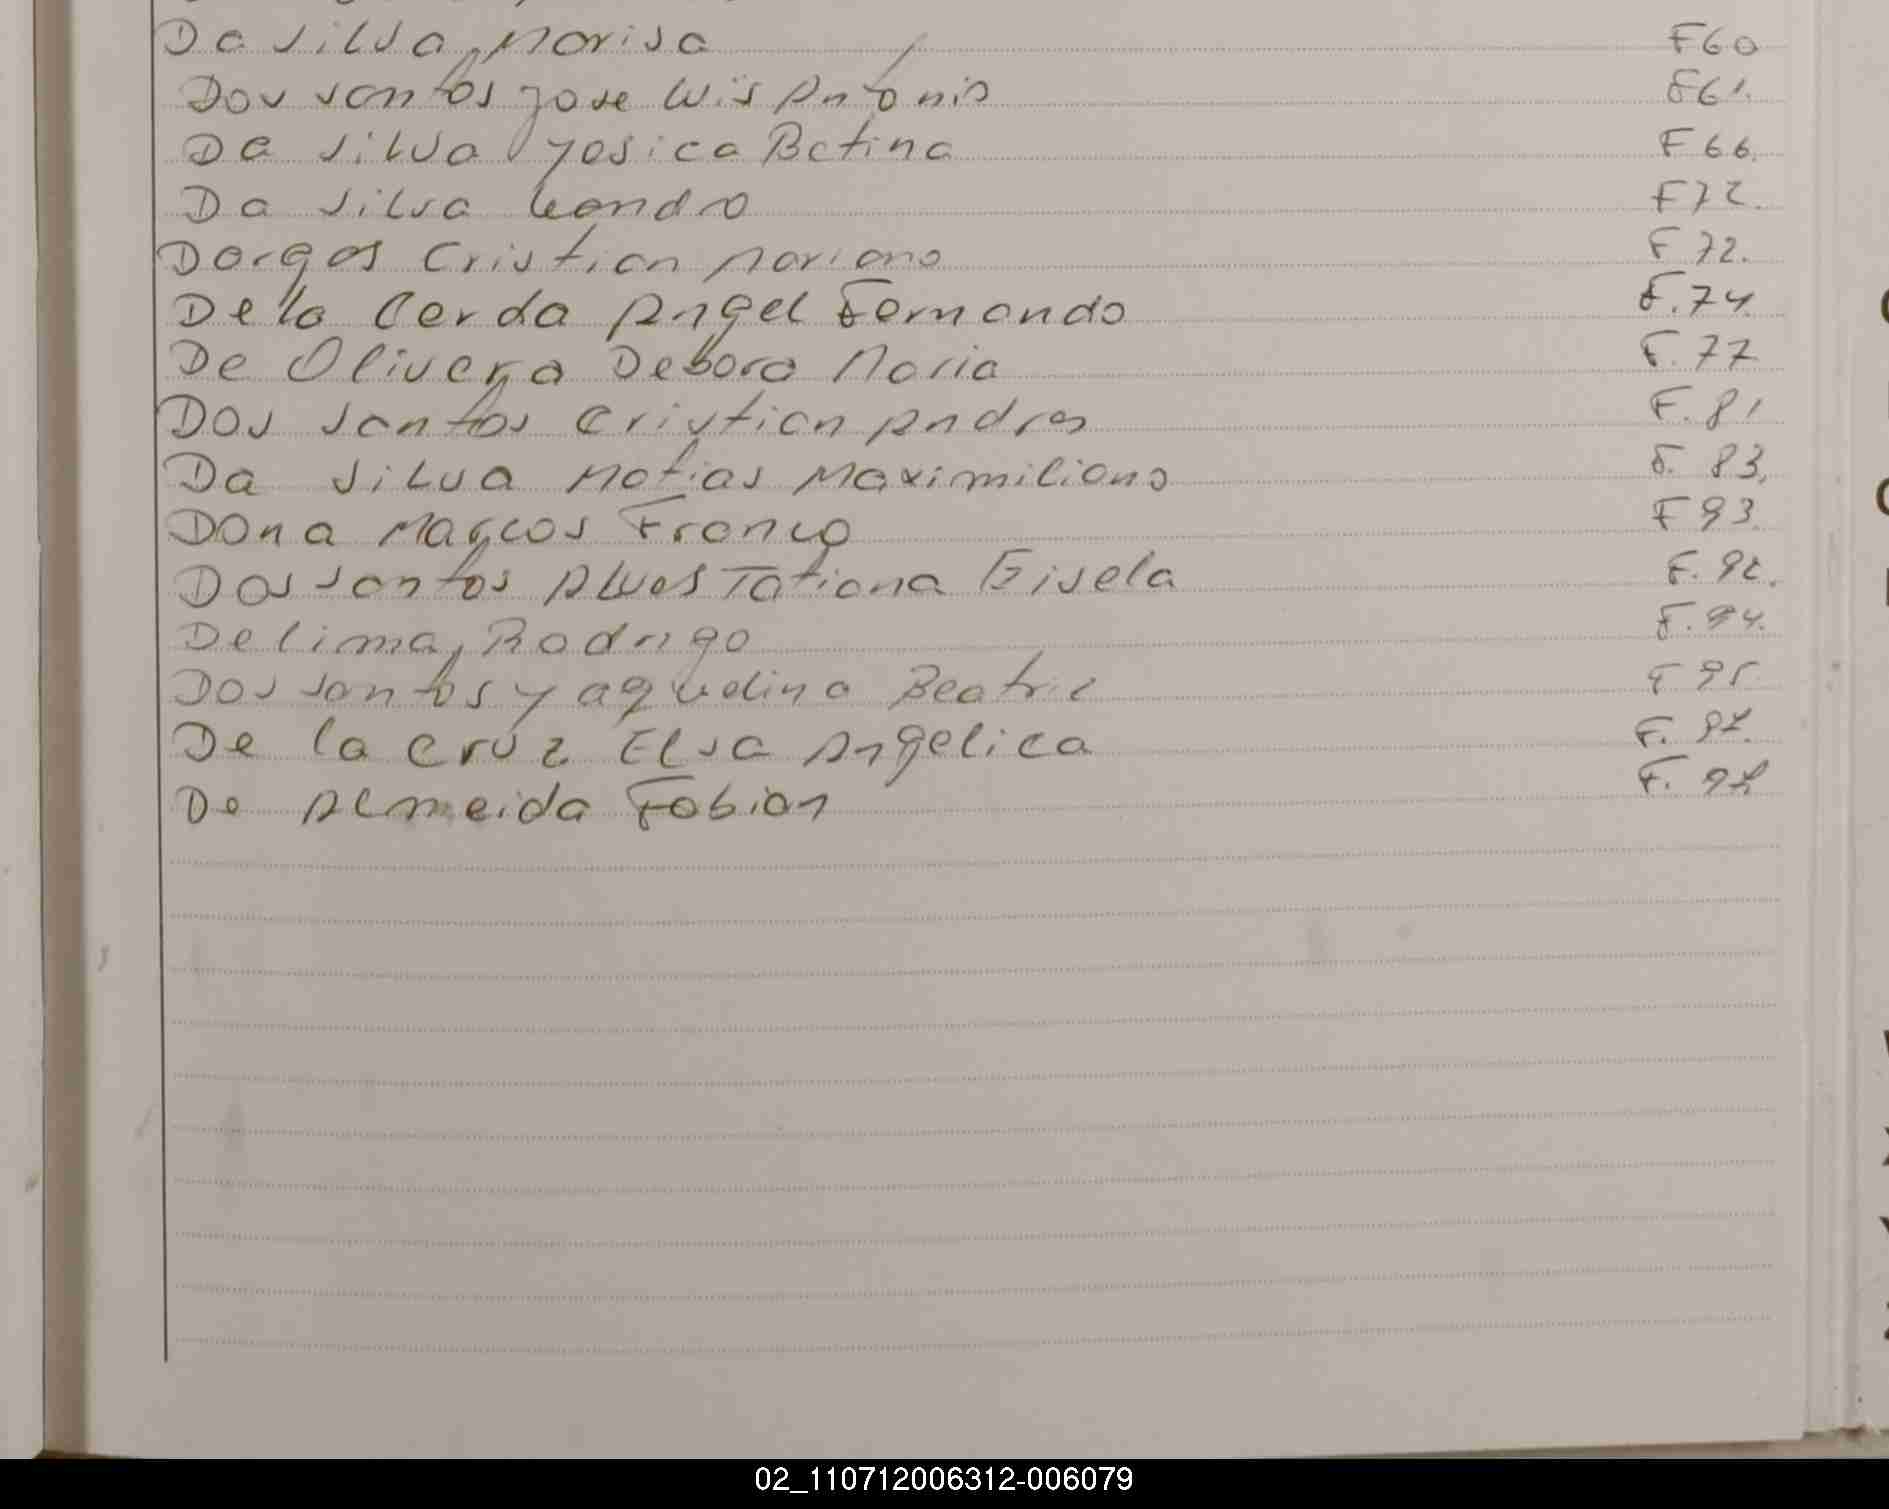 Da Silva, Marisa F60
Dos Santos Jose Luis Antonio F61.
Da Silva Yesica Betina F66.
Da Silva Leandro F72.
Dargas Cristian Mariano F 72.
De la Cerda Angel Fernando F.74.
De Olivera Debora Maria F.77
Dos Santos Cristian Andres F.81
Da Silva Matias Maximiliano F. 83.
Dona Marcos Franco F93.
Dos Santos Alves Tatiana Gisela F.92.
De lima, Rodrigo F.94.
Dos Santos Yaquelina Beatriz F95.
De la Cruz Elsa Angelica
De Almeida Fabian
02_110712006312-006079